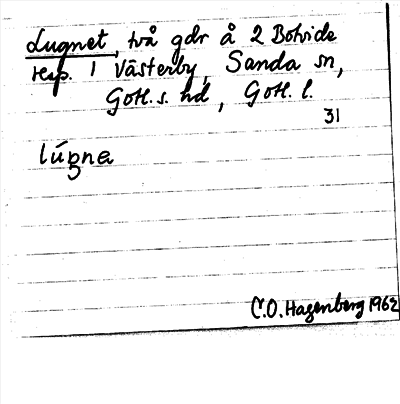 Lugnet, två gdr å 2 Botvide
resp. 1 Västerby, Sanda sn,
Gotl. s. hd, Gotl. l.
31
lúgna
C.O. Hagenberg 1962